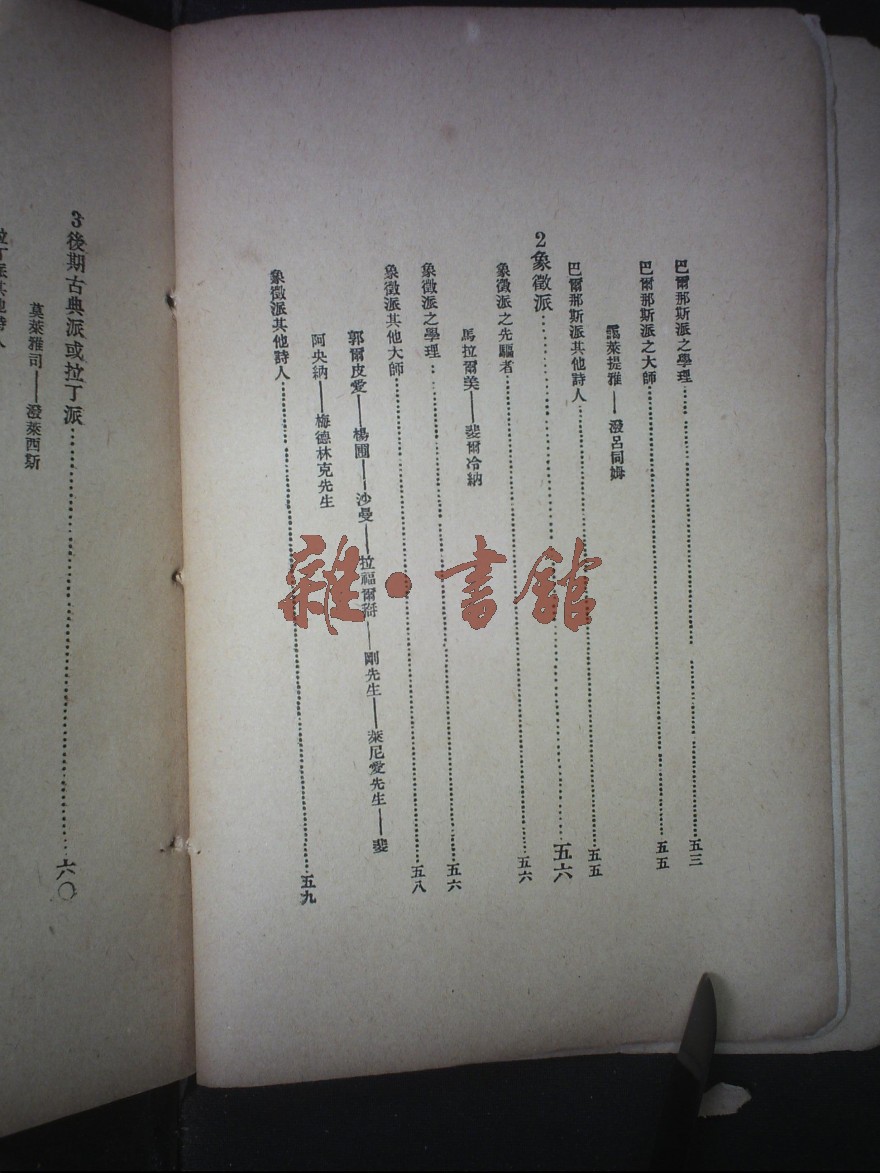 巴爾那斯派之學理……五三
巴爾那斯派之大師……五五
萊提雅——潑呂同姆
巴爾那斯派其他詩人……五五
2象徵派……五六
象徵派之先驅者……五六
馬拉爾美——斐爾冷納
象徵派之學理……五六
象徵派其他大師……五八
郭爾皮愛——楊圃——沙曼——拉福爾——剛先生——萊尼愛先生——斐
阿央納——梅德林克先生
象徵派其他詩人……五九
3後期古典派或拉丁派……六〇
莫萊雅司——潑萊西斯
拉丁派其他詩人
雜·書館